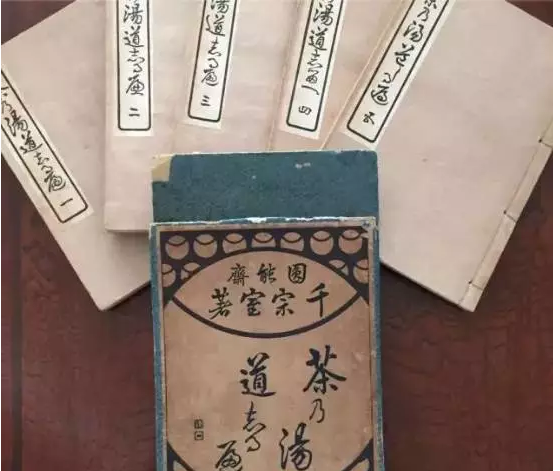 乃湯道志る遍 一
湯道志る遍 二
湯道志る遍 三
湯道志る遍 四
茶乃湯道志る遍 五
圓能齋
千宗室著
茶乃湯
道志る遍